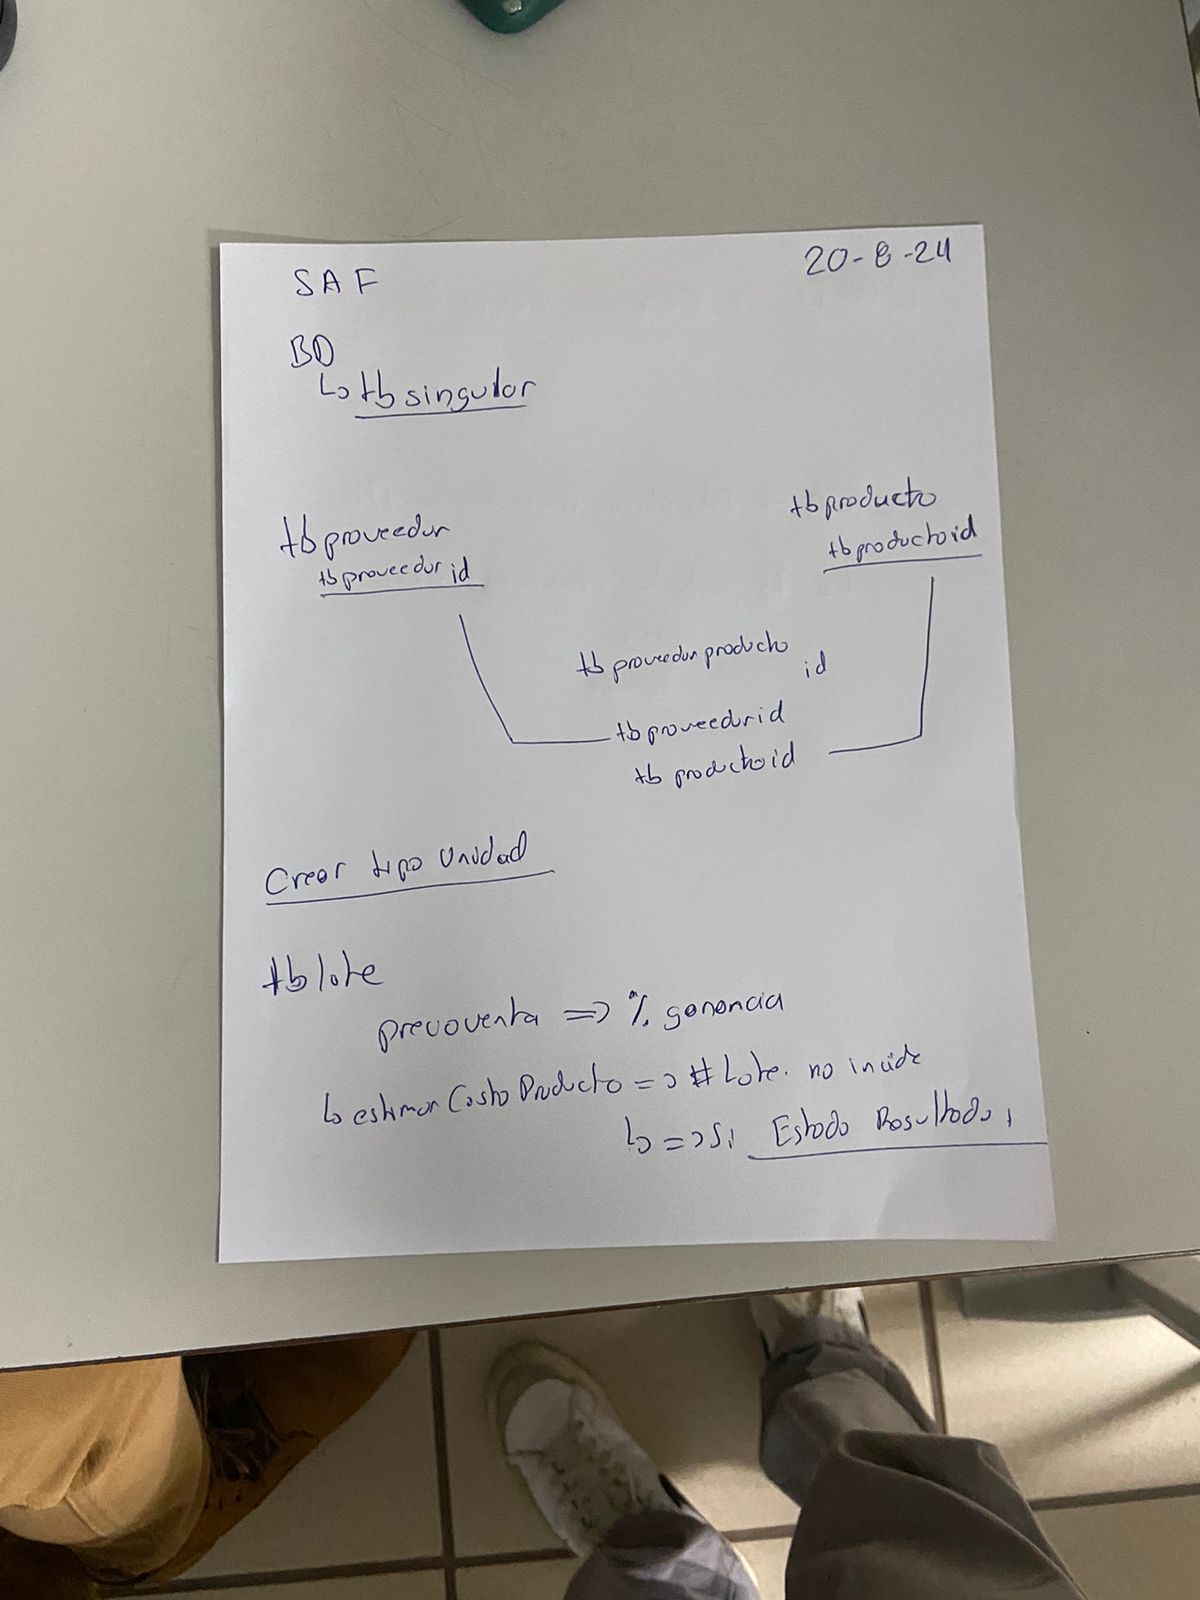 SAF
20-8-24
BD
↳ tbsingular
tbproveedor
tbproveedorid
tbproducto
tbproductoid
tbproveedorproducto
id
tbproveedorid
tbproductoid
Crear tipo Unidad
tblote
precioventa => % ganancia
↳ estimar Costo Producto => # Lote. no incide
↳ => Si Estado Resultado,